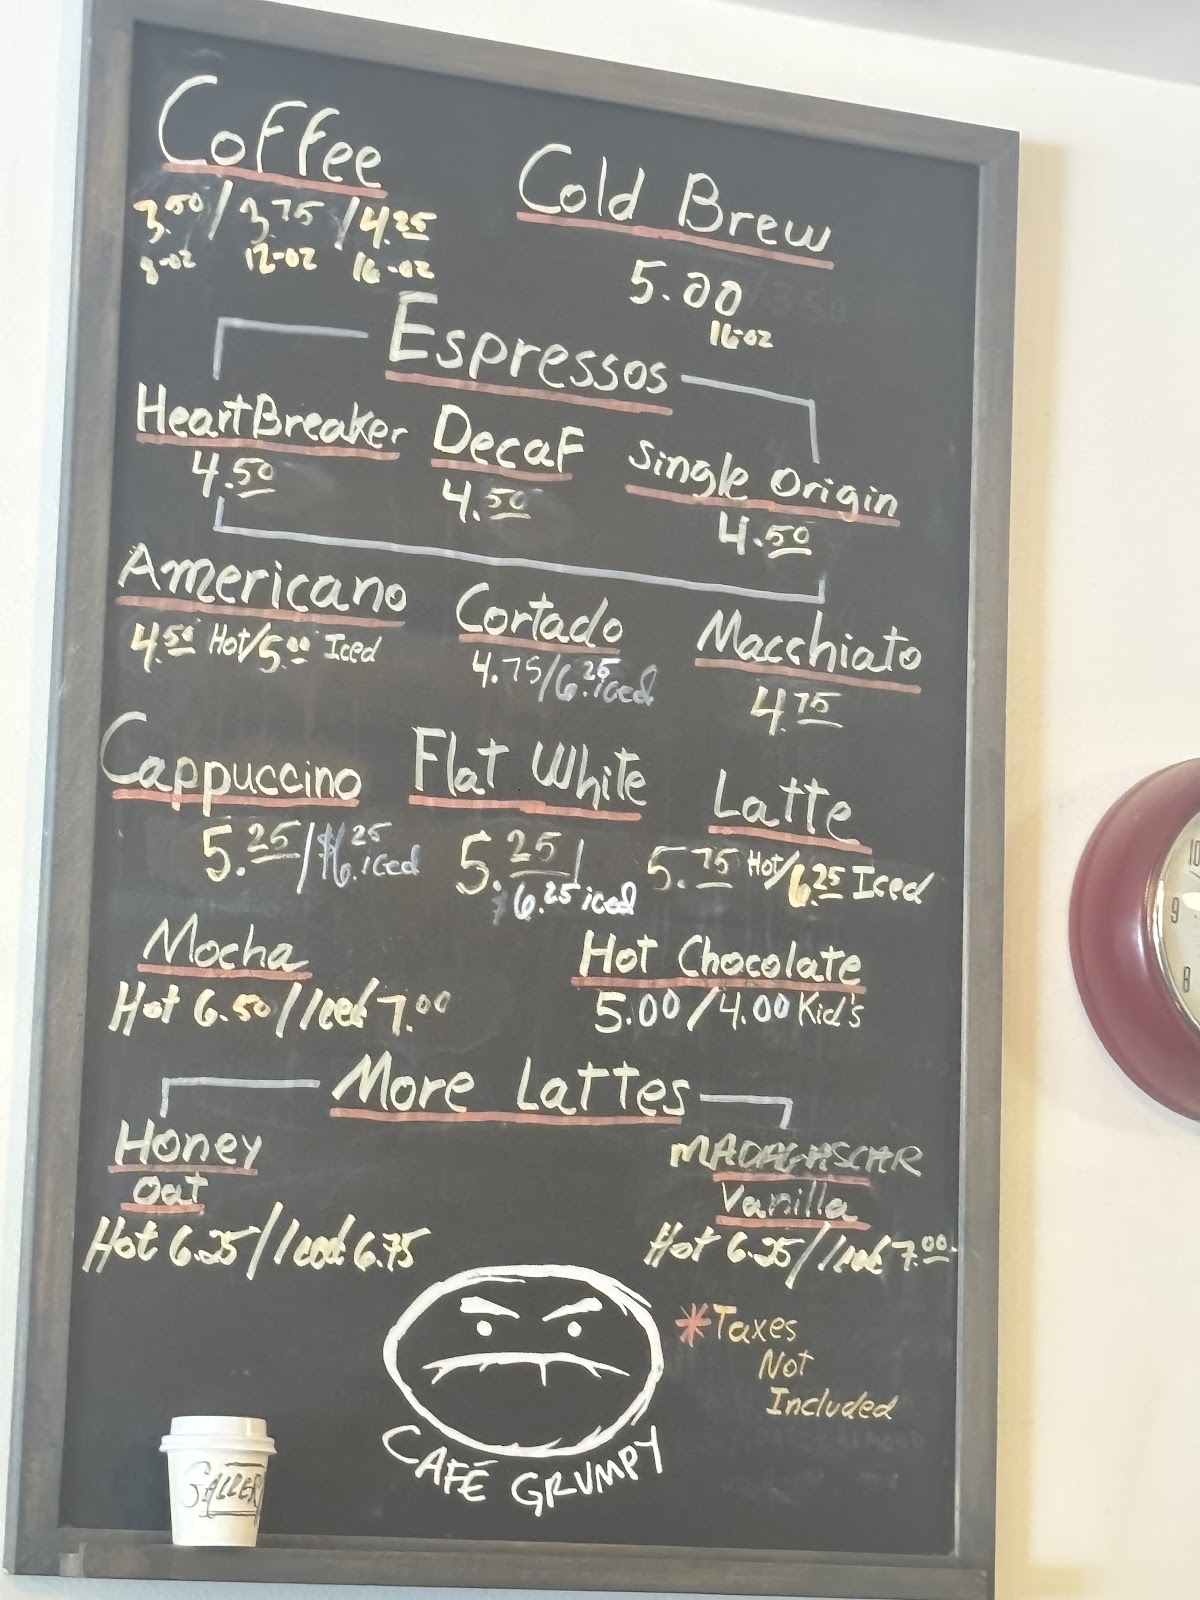 Coffee
3.50 / 3.75 / 4.25
8-oz 12-oz 16-oz
Cold Brew
5.00
16-oz
Espressos
HeartBreaker Decaf Single Origin
4.50 4.50 4.50
Americano Cortado Macchiato
4.50 Hot/5.00 Iced 4.75/6.25 iced 4.75
Cappuccino Flat White Latte
5.25/$6.25 iced 5.25/ 5.75 Hot/6.25 Iced
$6.25 iced
Mocha Hot Chocolate
Hot 6.50/Iced 7.00 5.00/4.00 Kid's
More Lattes
Honey MADAGASCAR
Oat Vanilla
Hot 6.25/Iced 6.75 Hot 6.25/Iced 7.00
*Taxes
Not
Included
CAFÉ GRUMPY
10
9
8